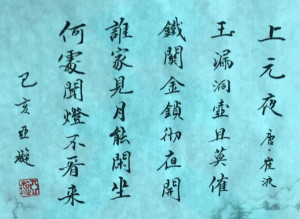 上元夜 唐·崔液
玉漏銅壺且莫催
鐵關金鎖彻夜開
誰家見月能閑坐
何處聞燈不看来
己亥